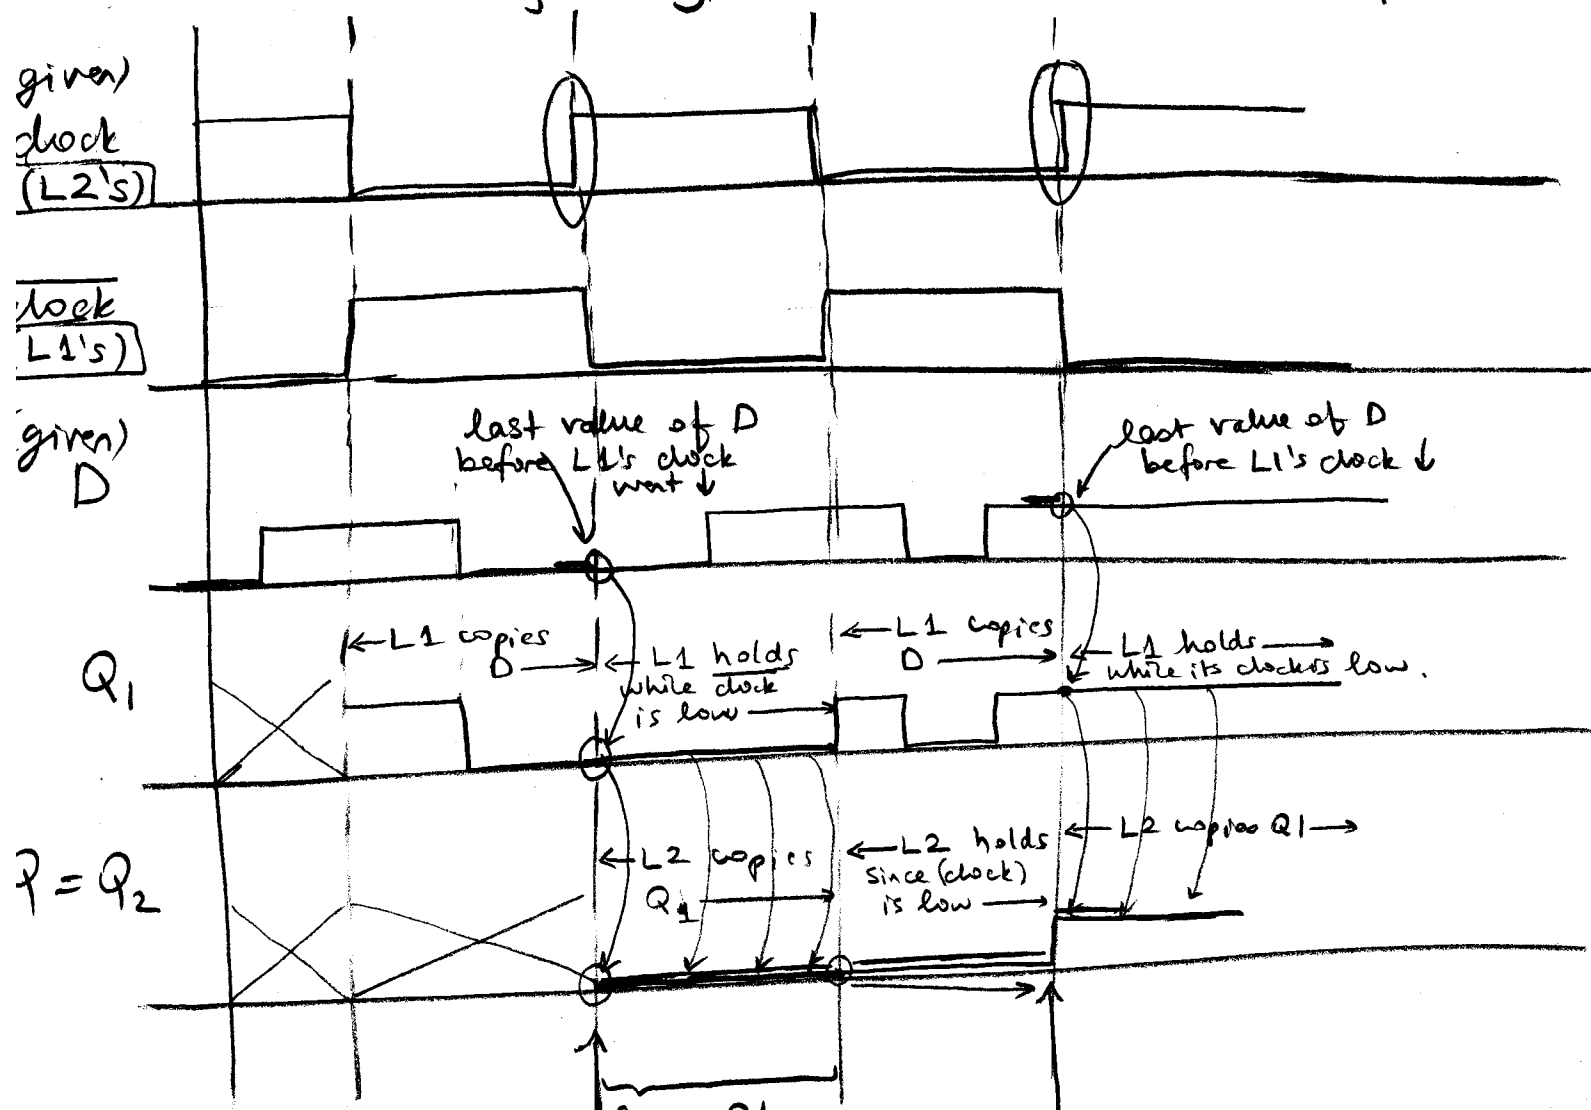 given)
clock
(L2's)
clock
L1's)
given)
D
last value of D
before L1's clock
went ↓
last value of D
before L1's clock ↓
Q1
←L1 copies
D →
← L1 holds
while clock
is low →
←L1 copies
D →
← L1 holds →
while its clock is low.
= Q2
←L2 copies
Q1 →
←L2 holds
since (clock)
is low →
← L2 copies Q1→